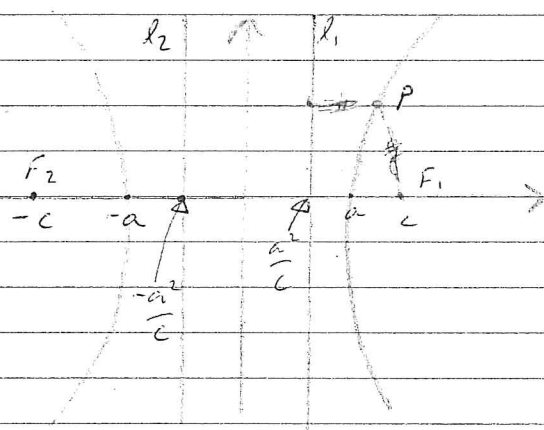 l₂ l₁
P
F₂ F₁
-c -a a c
a²/c
-a²/c